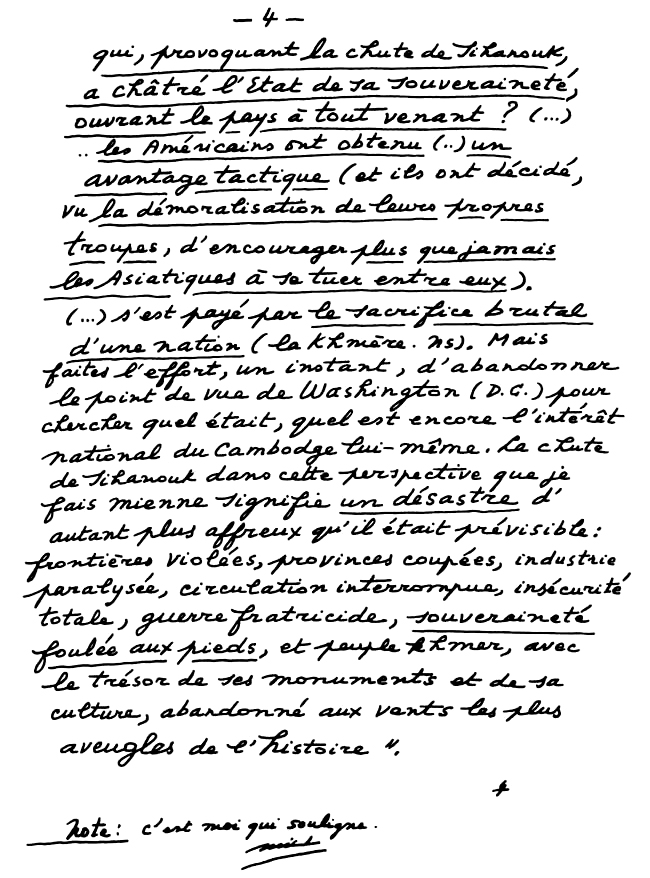 — 4 —
qui, provoquant la chute de Sihanouk,
a châtré l'Etat de sa souveraineté,
ouvrant le pays à tout venant ? (...)
.. les Américains ont obtenu (..) un
avantage tactique (et ils ont décidé,
vu la démoralisation de leurs propres
troupes, d'encourager plus que jamais
les Asiatiques à se tuer entre eux).
(...) s'est payé par le sacrifice brutal
d'une nation (la Khmère. ns). Mais
faites l'effort, un instant, d'abandonner
le point de vue de Washington (D.C.) pour
chercher quel était, quel est encore l'intérêt
national du Cambodge lui-même. La chute
de Sihanouk dans cette perspective que je
fais mienne signifie un désastre d'
autant plus affreux qu'il était prévisible :
frontières violées, provinces coupées, industrie
paralysée, circulation interrompue, insécurité
totale, guerre fratricide, souveraineté
foulée aux pieds, et peuple khmer, avec
le trésor de ses monuments et de sa
culture, abandonné aux vents les plus
aveugles de l'histoire ".
Note : c'est moi qui souligne.